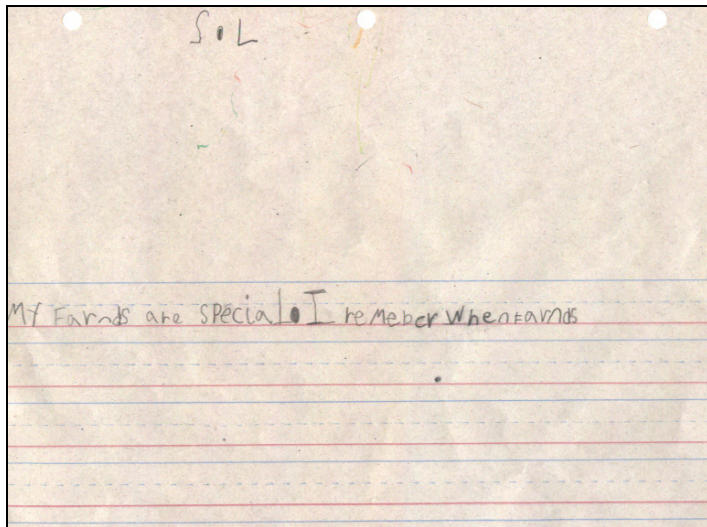 S.L
My Farnds are special. I remeber when Farnds